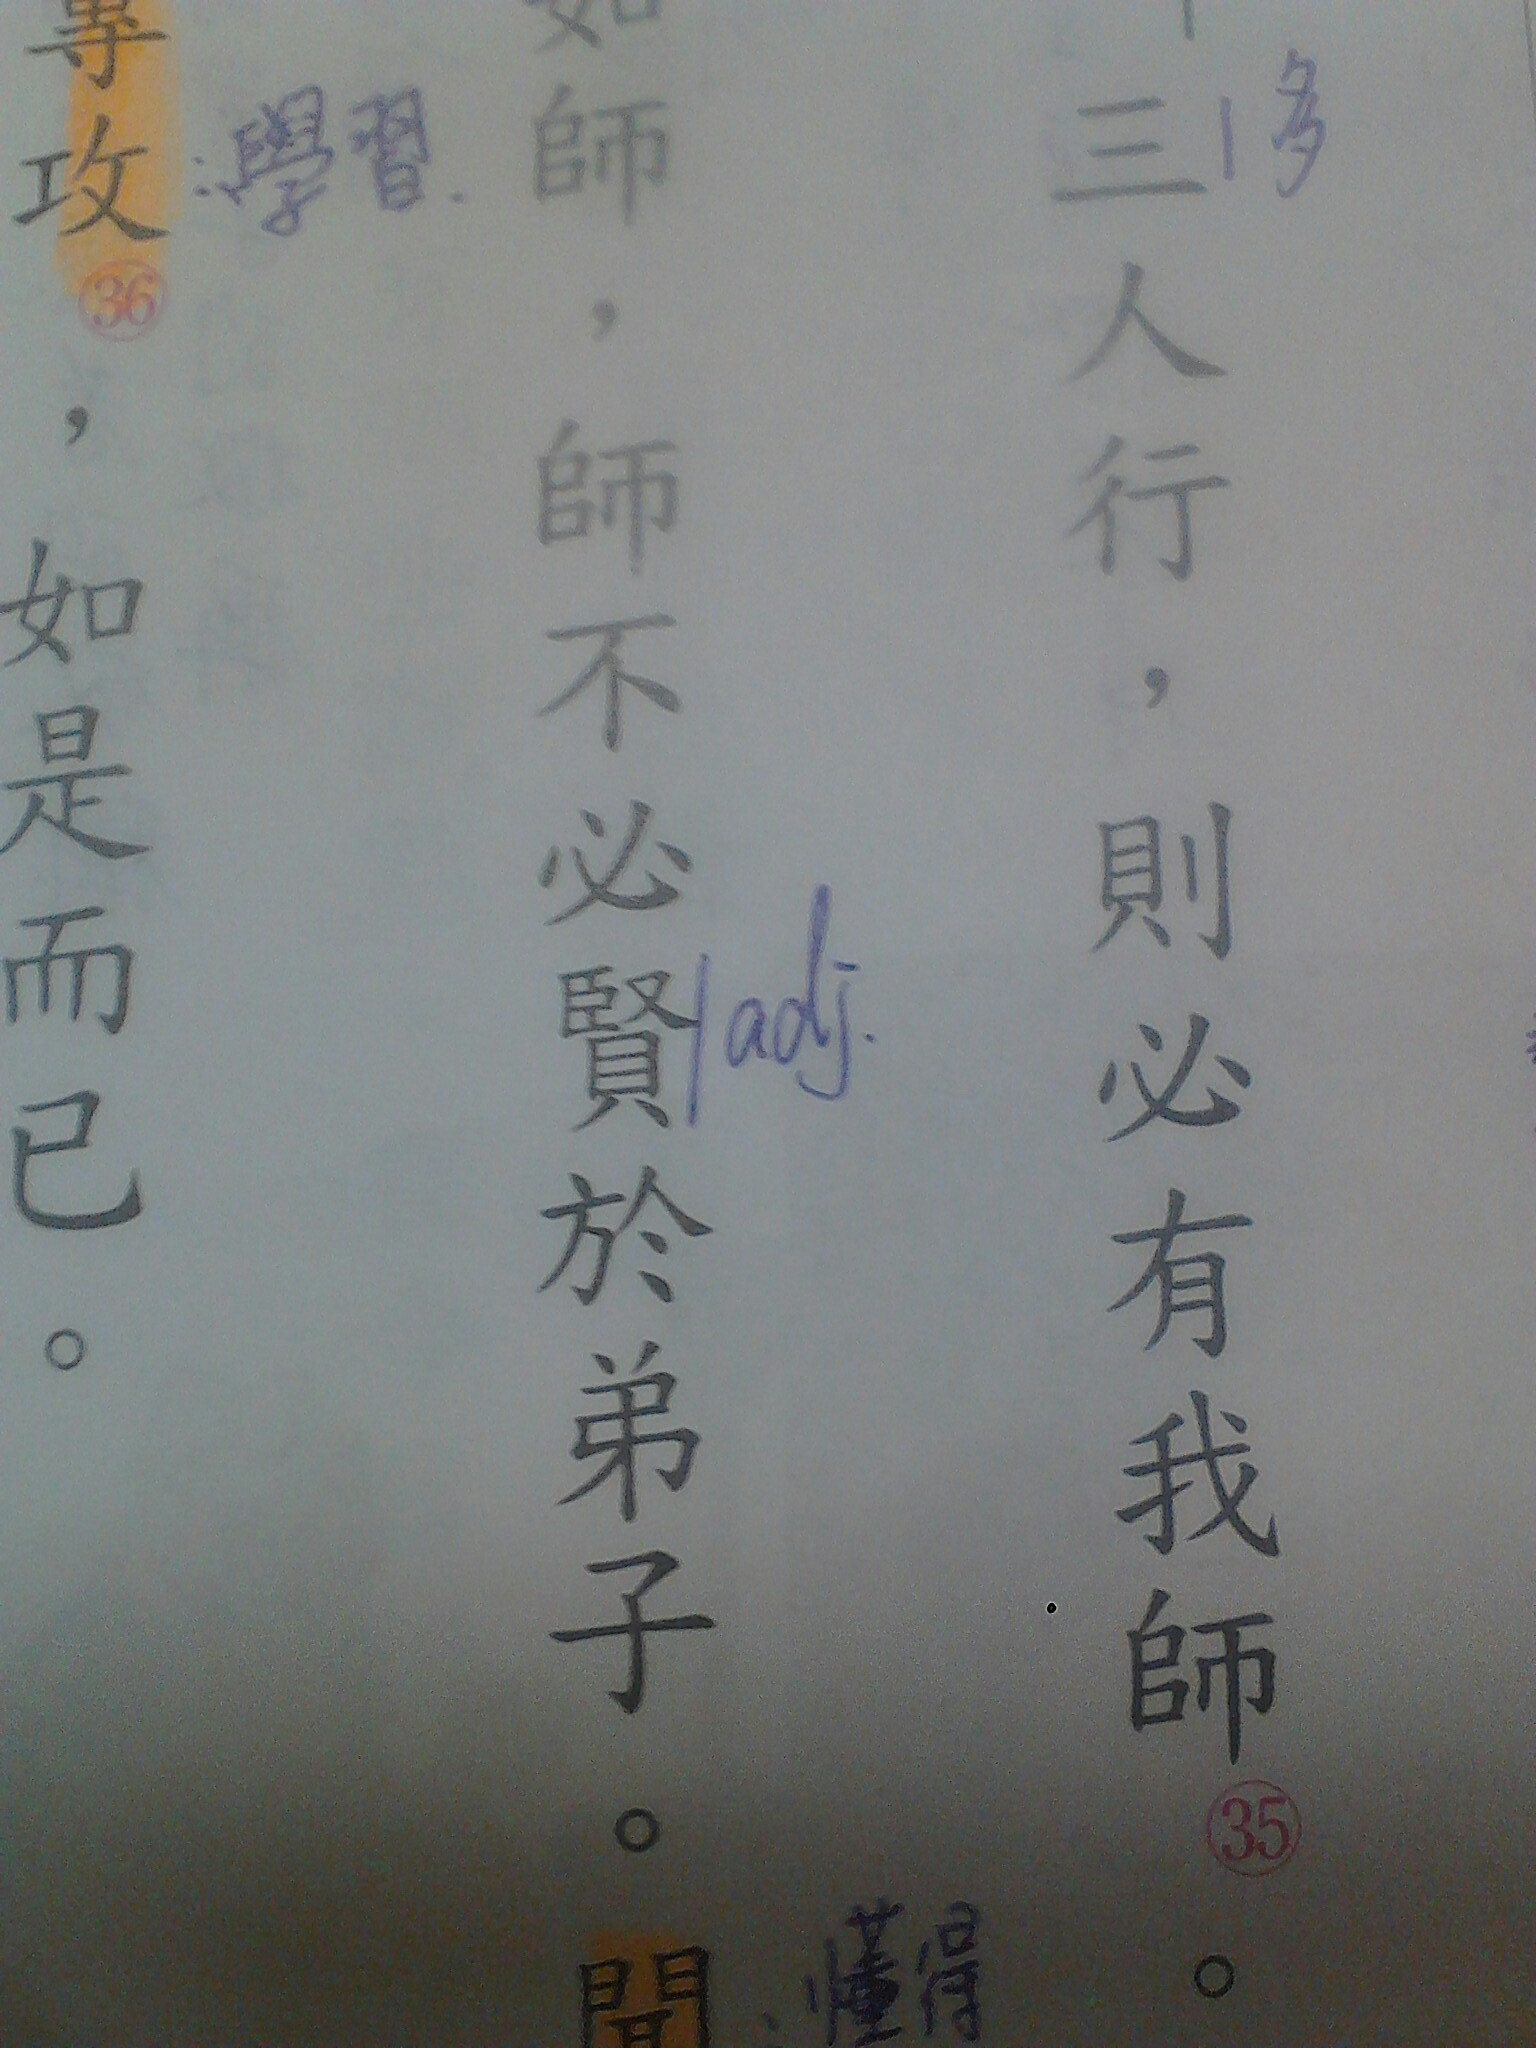 三人行，則必有我師㉟。
多
如師，師不必賢於弟子。聞
adj.
:懂得
專攻㊱，如是而已。
:學習.